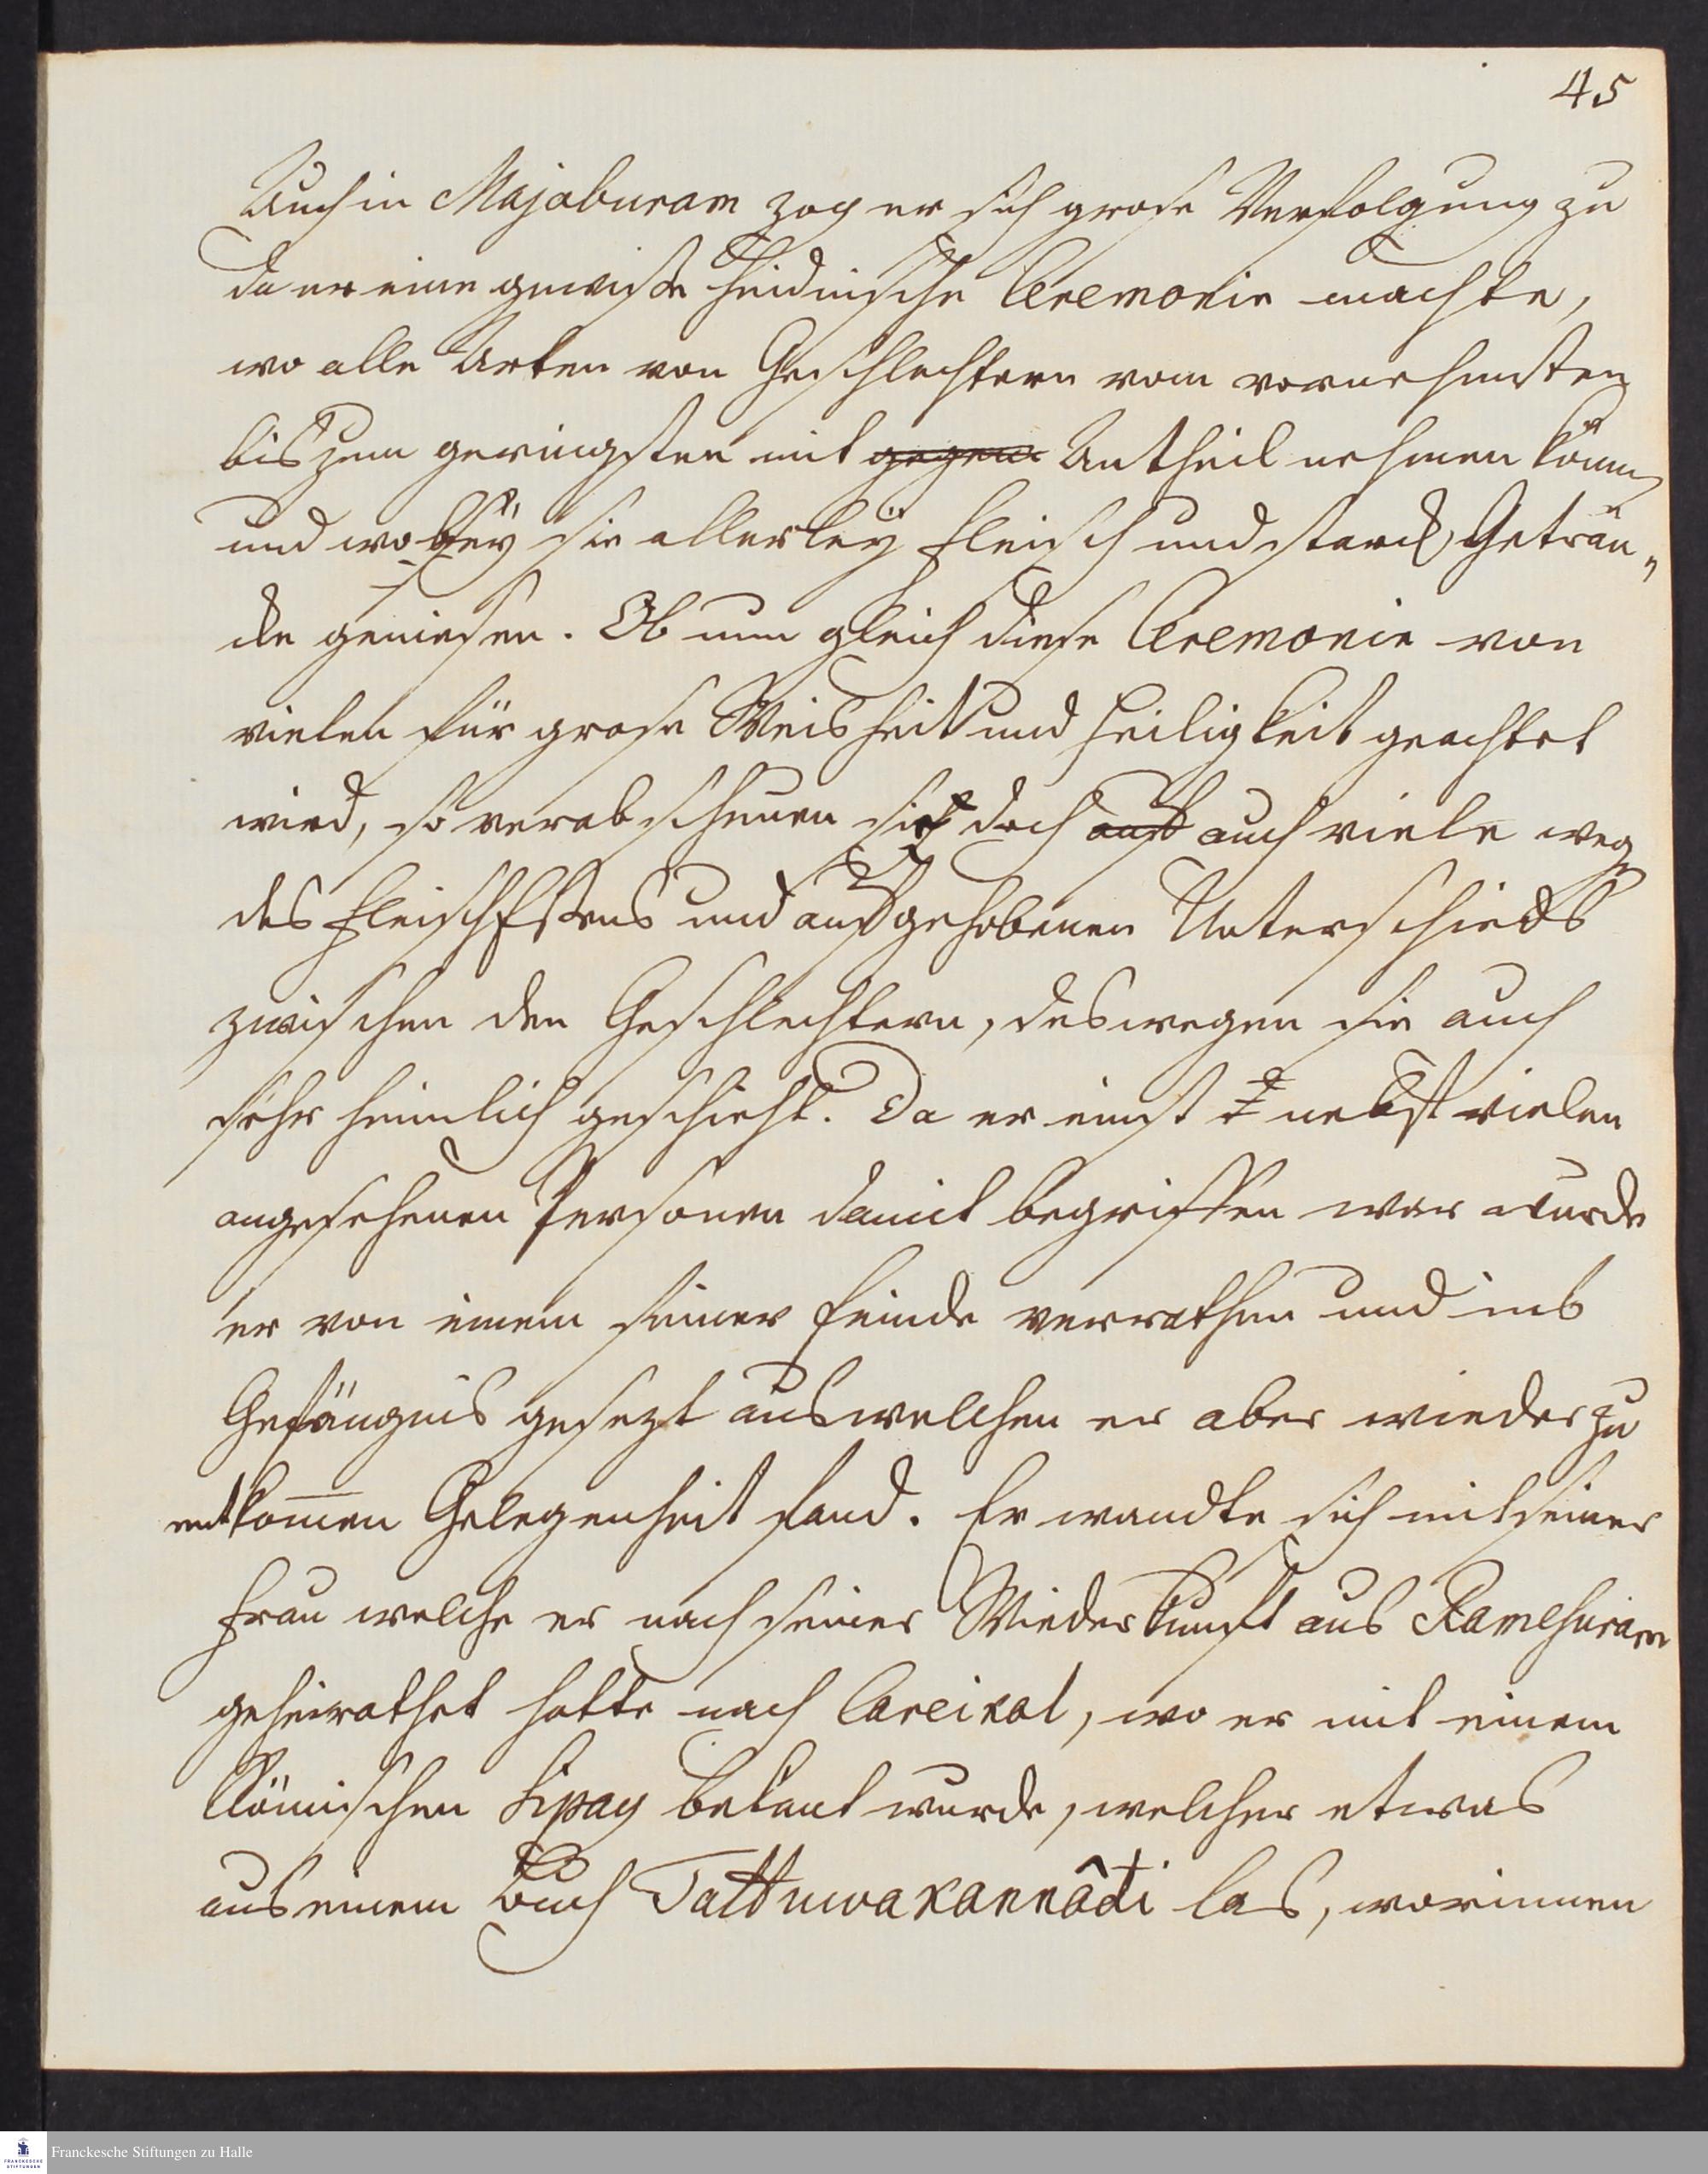 45
Auch in Majaburam zog er sich grose Verfolgung zu
da er eine gewisse heidnische Ceremonie machte,
wo alle Arten von Geschlechtern vom vornehmsten
bis zum geringsten mit gegen Antheil nehmen könn
und wobey sie allerley Fleisch und starck Geträn„
cke geniesen. Ob nun gleich diese Ceremonie von
vielen für grose Weisheit und Heiligkeit geachtet
wird, so verabscheuen sie doch auch viele weg
des Fleischessens und aufgehobenen Unterschieds
zwischen den Geschlechtern, deswegen sie auch
sehr heimlich geschieht. Da er einst nebst vielen
angesehenen Personen damit begriffen war wurde
er von einem seiner Feinde verrathen und ins
Gefängnis gesezt aus welchen er aber wieder zu
entkom̄en Gelegenheit fand. Er wandte sich mit seiner
Frau welche er nach seiner Wiederkunft aus Ramesuram
geheirathet hatte nach Careikal, wo er mit einem
Römischen Sipay bekant wurde, welcher etwas
aus einem Buch Tattuwakannâdi las, worinnen
Franckesche Stiftungen zu Halle
FRANCKESCHE
STIFTUNGEN